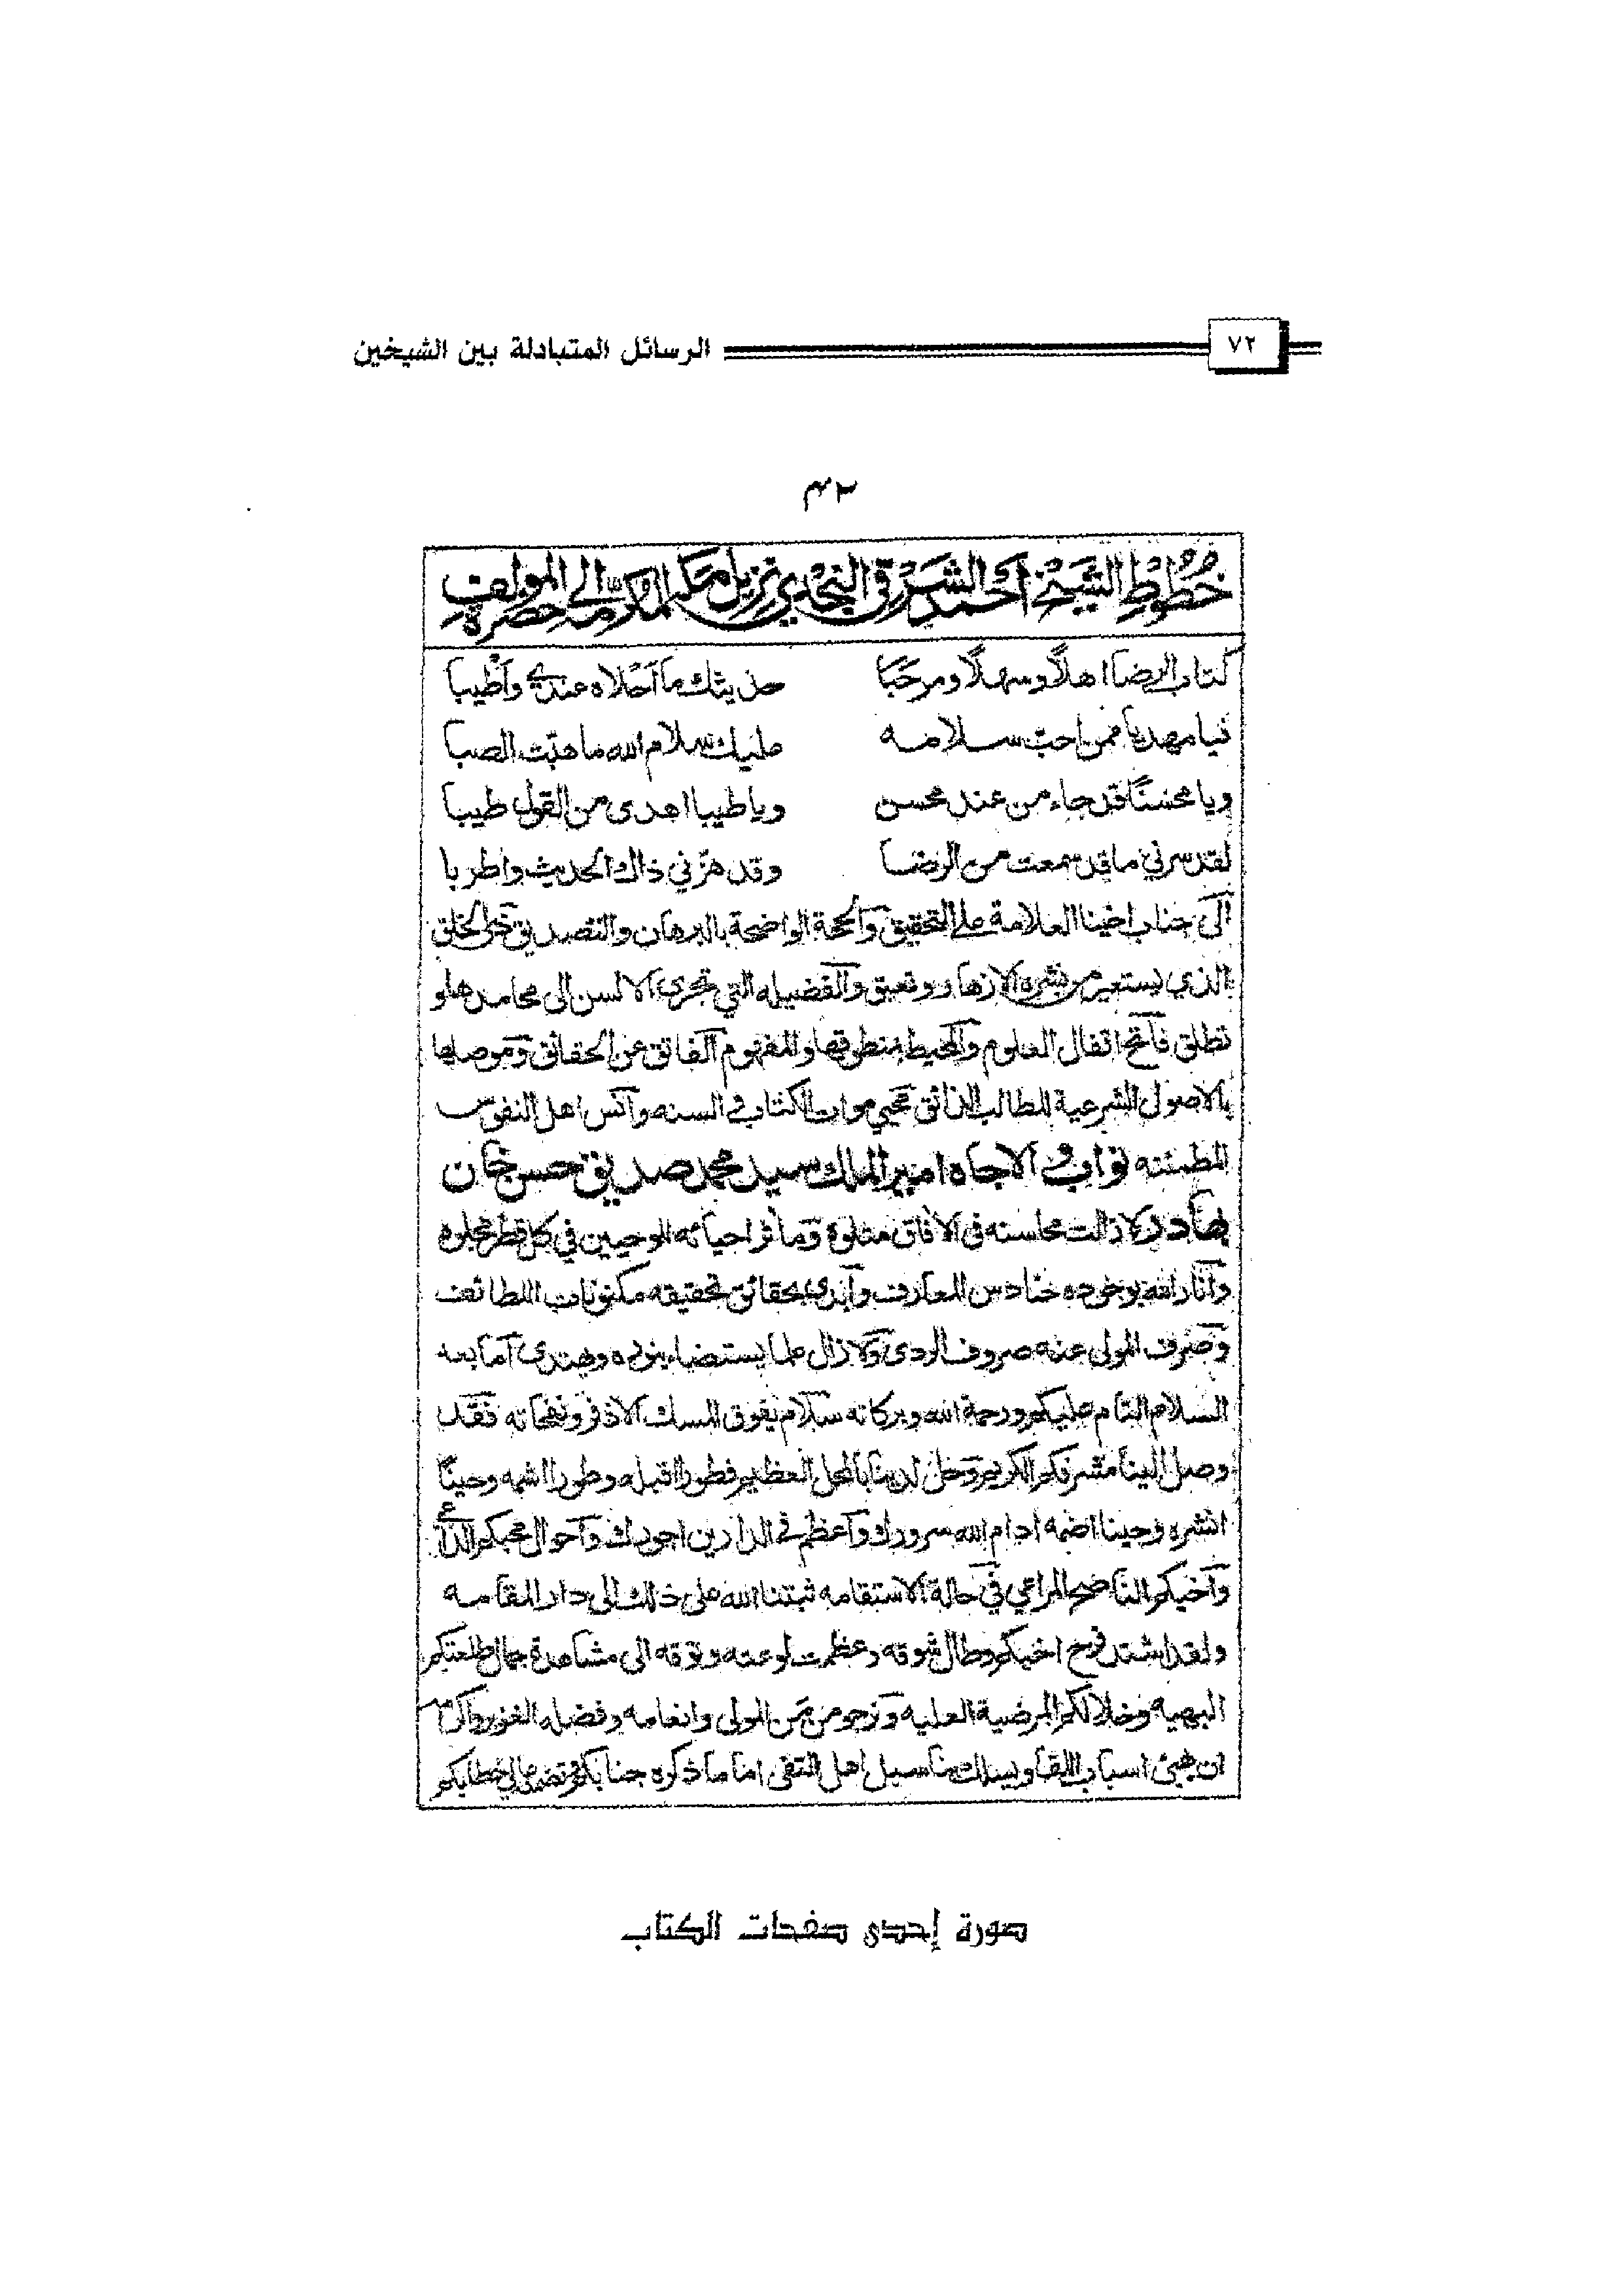 ٧٢
الرسائل المتبادلة بين الشيخين
٤٢
خطوط الشيخ أحمد الشرقي النجدي نزيل مكة المكرمه الى حضرة المؤلف
كتاب الرضا اهلاً وسهلاً ومرحبًا حديثك ما أحلاه عندي وأطيبا
فيا مهديا ممن احبّ سلامه عليك سلام الله ما هبّت الصبا
ويا محسنًا قد جاء من عند محسن ويا طيبا اهدى من القول طيبا
لقد سرني ما قد سمعت من الرضا وقد هزّني ذاك الحديث واطربا
الى جناب اخينا العلامة على التحقيق والحجة الواضحة بالبرهان والتصديق
الذي يستعير من نشره الازهار وتعبق والفضيله التي تجري الالسن الى محامدها و
تطلق فاتح اقفال العلوم والمحيط بمنطوقها والمفهوم الفائق عن الحقائق وموصلها
بالاصول الشرعية للطالب الذائق محيي موات الكتاب والسنه وآنس اهل النفوس
المطمئنه نواب الاجاه امير الملك سيد محمد صديق حسن خان
بهادر لا زالت محاسنه في الآفاق متلوة ومآثر احيائه الوحيين في كل قطر مجلوه
وأنار الله بوجوده حنادس المعارف وأبدى بحقائق تحقيقه مكنونات اللطائف
وصرف المولى عنه صروف الردى ولا زال علما يستضاء بنوره ويهتدى أما بعد
السلام التام عليكم ورحمة الله وبركاته سلام يفوق المسك الاذفر ونفحاته فقد
وصل الينا مشرفكم الكريم وحل لدينا بالمحل العظيم فطورا اقبله وطورا اشمه وحينًا
انشره وحينا اضمه أدام الله سرورك وأعظم في الدارين اجورك وأحوال محبكم الداعي
وأخيكم الناصح المراعي في حالة الاستقامه ثبتنا الله على ذلك الى دار المقامه
ولقد اشتد اخيكم وطال شوقه وعظمت لوعته وتوقه الى مشاهدة جمال طلعتكم
البهيه وخلالكم المرضية العليه ونرجو من من المولى وانعامه وفضله
ان يهيئ اسباب اللقا ويسلك بنا سبيل اهل التقى اما ما ذكره جنابكم خطابكم
صورة إحدى صفحات الكتاب